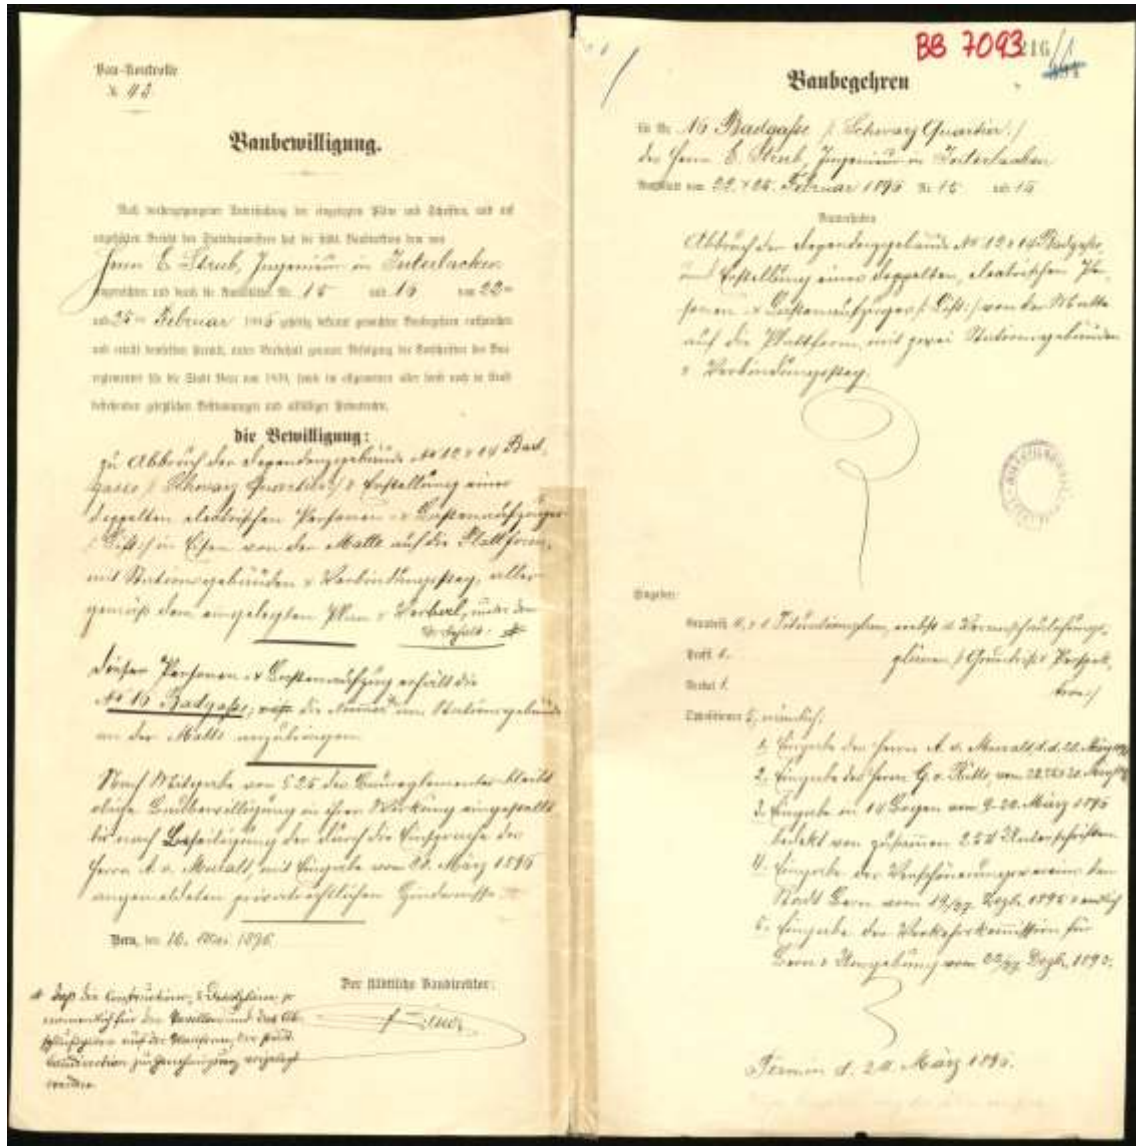 Bau-Kontrolle
№ 43
Baubewilligung.
Nach vorhergegangener Untersuchung der eingelegten Pläne und Schriften, und auf
angehörten Bericht des Stadtbaumeisters hat die städt. Baudirektion dem von
Herrn E. Strub, Ingenieur in Interlaken
eingereichten und durch die Amtsblätter Nr. 15 und 16 vom 22ten
und 25ten Februar 1896 gehörig bekannt gemachten Baubegehren entsprochen
und erteilt demselben hiermit, unter Vorbehalt genauer Befolgung der Vorschriften des Bau-
reglementes für die Stadt Bern von 1839, sowie im allgemeinen aller sonst noch in Kraft
bestehenden gesetzlichen Bestimmungen und allfälliger Privatrechte,
die Bewilligung:
zu Abbruch der Dependenzgebäude № 12 & 14 Bad-
gasse /: Schwarz Quartier :/ & Erstellung eines
doppelten elektrischen Personen- & Lastenaufzuges
/: Lift :/ in Eisen von der Matte auf die Plattform,
mit Stationsgebäuden & Verbindungssteg, alles
gemäß dem eingelegten Plan & Verbal, unter dem
Vorbehalt: #
Dieser Personen- & Lastenaufzug erhält die
№ 16 Badgasse, die Nummer am Stationsgebäude
an der Matte anzubringen.
Nach Mitgabe von § 25 des Baureglementes bleibt
obige Baubewilligung in ihrer Wirkung eingestellt
bis nach Beseitigung der durch die Einsprache des
Herrn A. v. Muralt, mit Eingabe vom März 1896
angemeldeten privatrechtlichen Hindernisse.
Bern, den 16. Mai 1896
Der städtische Baudirektor:
# daß die Construktions- & Detailpläne,
namentlich für den und den Ab-
auf der Plattform, der städt.
Baudirection zur Genehmigung vorgelegt
werden.
BB 7093
216/1
Baubegehren
für Nr. 16 Badgasse /: Schwarz Quartier :/
des Herrn E. Strub, Ingenieur in Interlaken
Amtsblatt vom 22. & 25. Februar 1896 Nr. 15 und 16
Bauvorhaben
Abbruch der Dependenzgebäude № 12 & 14 Badgasse,
und Erstellung eines doppelten, elektrischen Per-
sonen- & Lastenaufzuges /: Lift :/ von der Matte
auf die Plattform, mit zwei Stationsgebäuden
& Verbindungssteg.
Eingaben:
Situationsplan, nebst
Profil 1. plänen /: Grundriss & Perspek-
Verbal 1. tive :/
Oppositionen 5, nämlich:
1. Eingabe des Herrn A. v. Muralt, d. d. März
2. Eingabe des Herrn G. v.
3. Eingabe in 14 Bogen vom 9-20. März 1896
bedekt von zusammen 254 Unterschriften
4. Eingabe des Verschönerungsvereins der
Stadt Bern vom 19/27. Dezb. 1895 & endlich
5. Eingabe der Verkehrskommission für
Bern & Umgebung vom Dezb. 1895.
Termin d. März 1896.